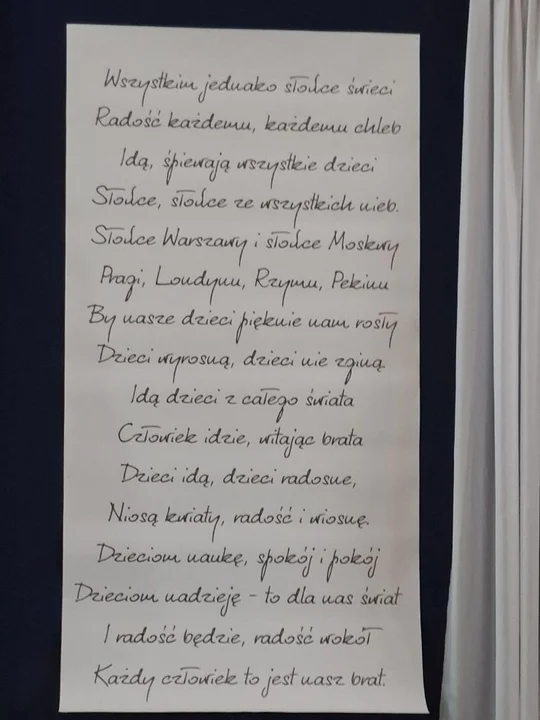 Wszystkim jednako słońce świeci
Radość każdemu, każdemu chleb
Idą, śpiewają wszystkie dzieci
Słońce, słońce ze wszystkich nieb.
Słońce Warszawy i słońce Moskwy
Pragi, Londynu, Rzymu, Pekinu
By nasze dzieci pięknie nam rosły
Dzieci wyrosną, dzieci nie zginą.
Idą dzieci z całego świata
Człowiek idzie, witając brata
Dzieci idą, dzieci radosne,
Niosą kwiaty, radość i wiosnę.
Dzieciom naukę, spokój i pokój
Dzieciom nadzieję - to dla nas świat
I radość będzie, radość wokół
Każdy człowiek to jest nasz brat.